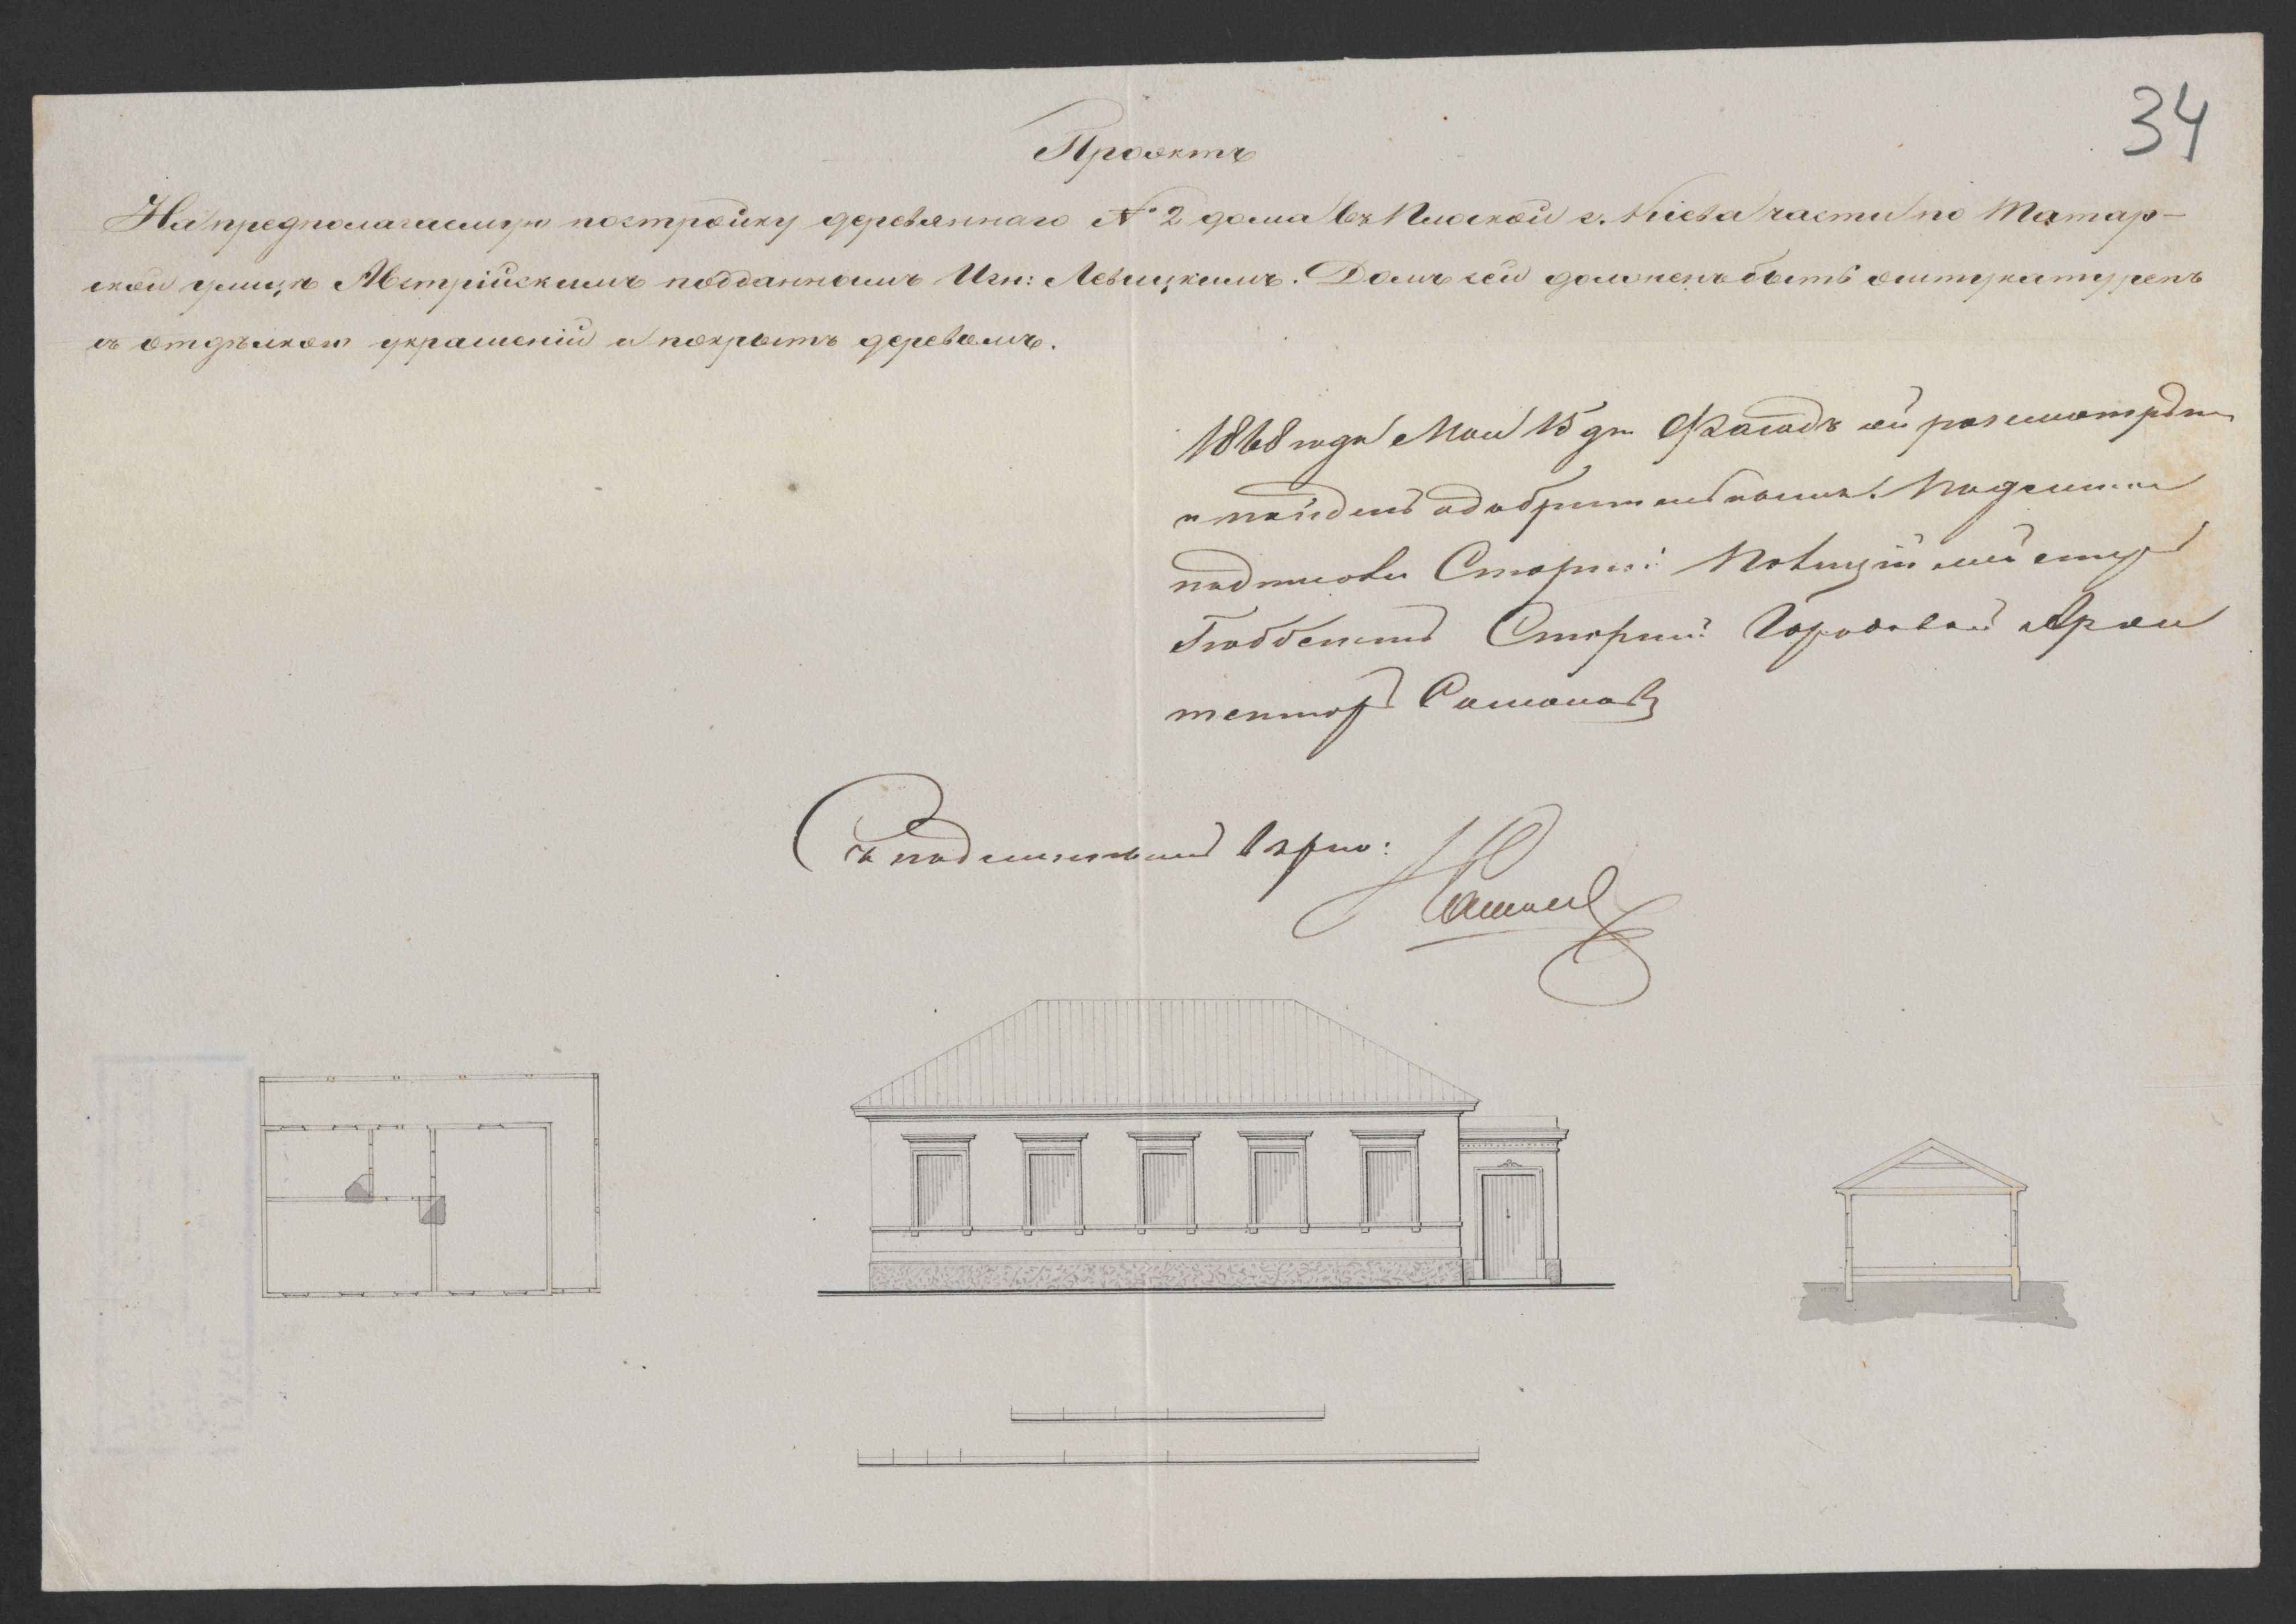 34
Проэктъ
На предполагаемую постройку деревяннаго № 2 дома въ Плоской г. Кіева части по Татар-
ской улицѣ Австрійскимъ подданнымъ Игн: Левицкимъ. Домъ сей долженъ быть оштукатуренъ
съ отдѣлкою украшеній и покрытъ деревомъ.
1868 года Мая 15 дня Фасадъ сей разсмотрѣнъ
и найденъ одобрительнымъ. Подлинное
подписали Старшій Полиціймейстеръ
Старшій Городовой Архи
текторъ
Съ подлиннымъ вѣрно: